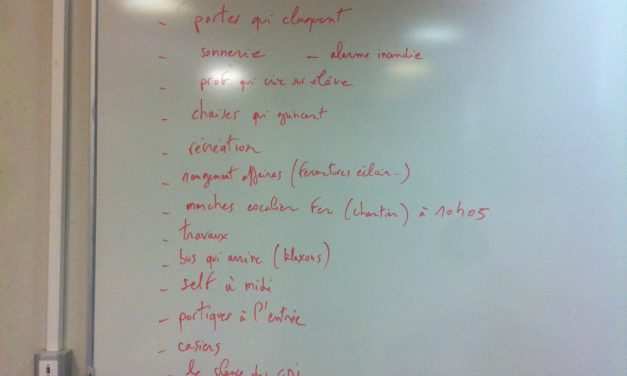 - portes qui claquent
- sonnerie - alarme incendie
- prof qui crie sur élève
- chaises qui grincent
- récréation
- rangement affaires (fermetures éclair..)
- marches escalier fer (chantier) à 10h05
- travaux
- bus qui arrive (klaxons)
- self à midi
- portiques à l'entrée
- casiers
- le silence du CDI